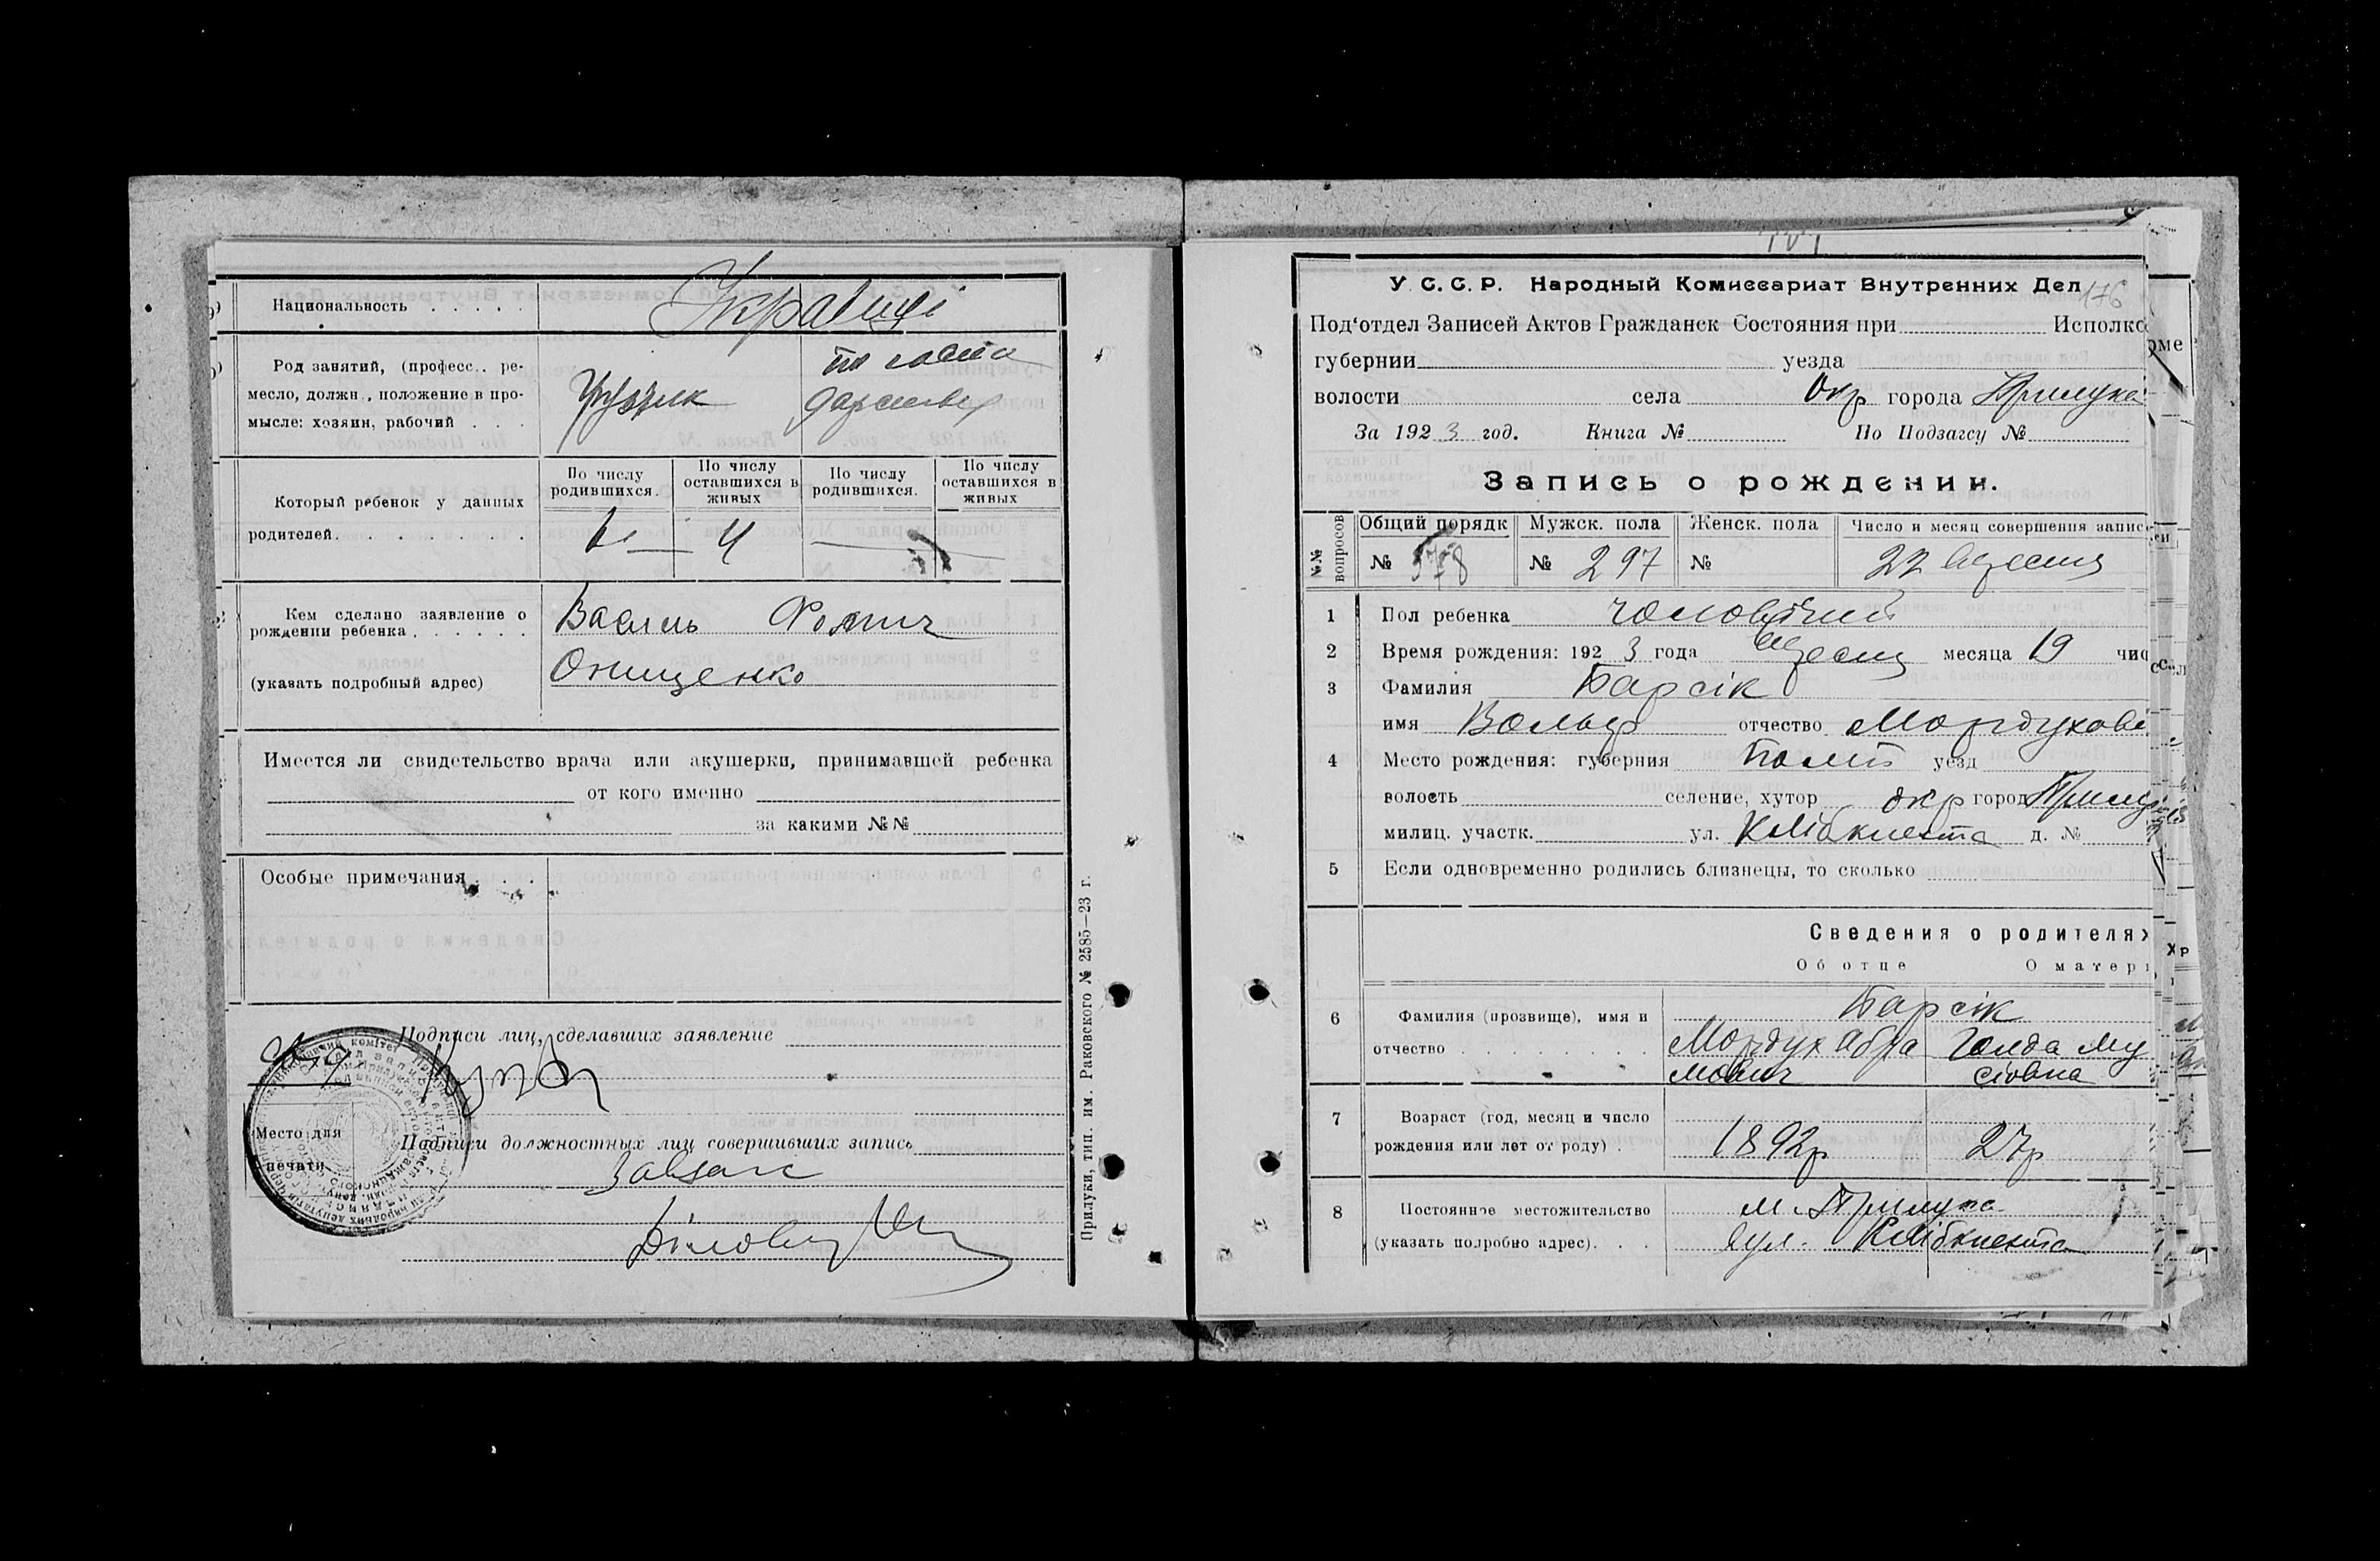 Национальность . . . . . Українці
Род занятий, (професс.. ре-
месло, должн., положение в про-
мысле: хозяин, рабочий . . .
по госпо
дарству
Который ребенок у данных
родителей . . . . . . . .
По числу
родившихся.
По числу
оставшихся в
живых
По числу
родившихся.
По числу
оставшихся в
живых
4
Кем сделано заявление о
рождении ребенка . . . . . .
(указать подробный адрес)
Василь Фомич
Онищенко
Имеется ли свидетельство врача или акушерки, принимавшей ребенка
от кого именно
за какими №№
Особые примечания . . .
Подписи лиц, сделавших заявление
Место для
печати
Подписи должностных лиц совершивших запись
Завзагс
Діловод
Прилуки, тип. им. Раковского № 2585—23 г.
176
У. С. С. Р. Народный Комиссариат Внутренних Дел
Под'отдел Записей Актов Гражданск Состояния при Исполко
губернии уезда
волости села Окр города Прилука
За 1923 год. Книга № По Подзагсу №
Запись о рождении.
№№ вопросов
Общий порядк Мужск. пола Женск. пола Число и месяц совершения записи
№ 578 № 297 № 22 вересня
1 Пол ребенка чоловічий
2 Время рождения: 1923 года вересня месяца 19 чис
3 Фамилия Барсік
имя Вольф отчество Мордухове
4 Место рождения: губерния Полт уезд
волость селение, хутор окр город Прилук
милиц. участк. ул. К Лібкнехта д. №
5 Если одновременно родились близнецы, то сколько
Сведения о родителях
Об отце О матери
6 Фамилия (прозвище), имя и
отчество . . . . . . . .
Барсік
Мордух Абра
мович
Голда Му
сіовна
7 Возраст (год, месяц и число
рождения или лет от роду) .
1892р 27р
8 Постоянное местожительство
(указать подробно адрес). . .
м. Прилука
вул. К Лібкнехта